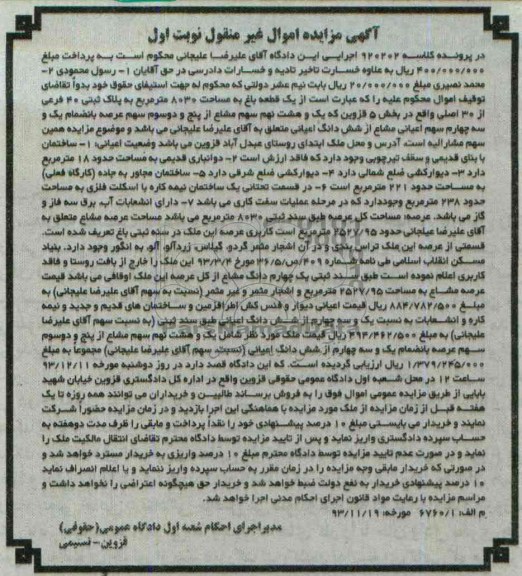 آگهی مزایده اموال غیر منقول نوبت اول
در پرونده کلاسه ۹۲۰۲۰۲ اجرایی این دادگاه آقای علیرضا علیجانی محکوم است به پرداخت مبلغ
۴۰۰/۰۰۰/۰۰۰ ریال به علاوه خسارت تاخیر تادیه و خسارات دادرسی در حق آقایان ۱- رسول محمودی ۲-
محمد نصیری مبلغ ۲۰/۰۰۰/۰۰۰ ریال بابت نیم عشر دولتی که محکوم له جهت استیفای حقوق خود بدوا تقاضای
توقیف اموال محکوم علیه را که عبارت است از یک قطعه باغ به مساحت ۸۰۳۰ مترمربع به پلاک ثبتی ۴۰ فرعی
از ۳۰ اصلی واقع در بخش ۵ قزوین که یک و هشت نهم سهم مشاع از پنج و دوسوم سهم عرصه بانضمام یک و
سه چهارم سهم اعیانی مشاع از شش دانگ اعیانی متعلق به آقای علیرضا علیجانی می باشد و موضوع مزایده همین
سهم مشارالیه است. آدرس و محل ملک ابتدای روستای عبدل آباد قزوین می باشد وضعیت اعیانی: ۱- ساختمان
با بنای قدیمی و سقف تیرچوبی وجود دارد که فاقد ارزش است ۲- دوانباری قدیمی به مساحت حدود ۱۸ مترمربع
دارد ۳- دیوارکشی ضلع شمالی دارد ۴- دیوارکشی ضلع شرقی دارد ۵- ساختمان مجاور به جاده (کارگاه فعلی)
به مساحت حدود ۲۲۱ مترمربع است ۶- در قسمت تحتانی یک ساختمان نیمه کاره با اسکلت فلزی به مساحت
حدود ۲۳۸ مترمربع وجوددارد که در مرحله عملیات سفت کاری می باشد ۷- دارای انشعابات آب، برق سه فاز و
گاز می باشد. عرصه: مساحت کل عرصه طبق سند ثبتی ۸۰۳۰ مترمربع می باشد مساحت عرصه مشاع متعلق به
آقای علیرضا علیجانی حدود ۲۵۲۷/۹۵ مترمربع است کاربری عرصه این ملک در سند ثبتی باغ تعریف شده است.
قسمتی از عرصه این ملک تراس بندی و در آن اشجار مثمر گردو، گیلاس، زردآلو، آلو، به انگور وجود دارد. بنیاد
مسکن انقلاب اسلامی طی نامه شماره ۴۰۹/ص/۳۶/۵ مورخ ۹۳/۳/۴ این ملک را خارج از بافت روستا و فاقد
کاربری اعلام نموده است طبق سند ثبتی یک چهارم دانگ مشاع از کل عرصه این ملک اوقافی می باشد قیمت
عرصه مشاع به مساحت ۲۵۲۷/۹۵ مترمربع و اشجار مثمر و غیر مثمر (نسبت به سهم آقای علیرضا علیجانی) به
مبلغ ۸۸۴/۷۸۲/۵۰۰ ریال قیمت اعیانی دیوار و فنس کشی اطراف زمین و ساختمان های قدیم و جدید و نیمه
کاره و انشعابات به نسبت یک و سه چهارم از شش دانگ اعیانی طبق سند ثبتی (به نسبت سهم آقای علیرضا
علیجانی) به مبلغ ۴۹۴/۴۶۲/۵۰۰ ریال قیمت ملک مورد نظر شامل یک و هشت نهم سهم مشاع از پنج و دوسوم
سهم عرصه بانضمام یک و سه چهارم از شش دانگ اعیانی (نسبت سهم آقای علیرضا علیجانی) مجموعا به مبلغ
۱/۳۷۹/۲۴۵/۰۰۰ ریال ارزیابی گردیده است. که این دادگاه قصد دارد در روز دوشنبه مورخه ۹۳/۱۲/۱۱
ساعت ۱۲ در محل شعبه اول دادگاه عمومی حقوقی قزوین واقع در اداره کل دادگستری قزوین خیابان شهید
بابایی از طریق مزایده عمومی اموال فوق را به فروش برساند طالبین و خریداران می توانند همه روزه تا یک
هفته قبل از زمان مزایده از ملک مورد مزایده با هماهنگی این اجرا بازدید و در زمان مزایده حضورا شرکت
نمایند و خریدار می بایستی مبلغ ۱۰ درصد پیشنهادی خود را نقدا پرداخت و مابقی را ظرف مدت دوهفته به
حساب سپرده دادگستری واریز نماید و پس از تایید مزایده توسط دادگاه محترم تقاضای انتقال مالکیت ملک را
نماید و در صورت عدم تایید مزایده توسط دادگاه محترم مبلغ ۱۰ درصد واریزی به خریدار مسترد خواهد شد و
در صورتی که خریدار مابقی وجه مزایده را در زمان مقرر به حساب سپرده واریز ننماید و یا اعلام انصراف نماید
۱۰ درصد پیشنهادی خریدار به نفع دولت ضبط خواهد شد و خریدار حق هیچگونه اعتراضی را نخواهد داشت و
مراسم مزایده با رعایت مواد قانون اجرای احکام مدنی اجرا خواهد شد.
م الف: ۶۷۶۰/۱ مورخه: ۹۳/۱۱/۱۹
مدیراجرای احکام شعبه اول دادگاه عمومی(حقوقی)
قزوین- نسیمی